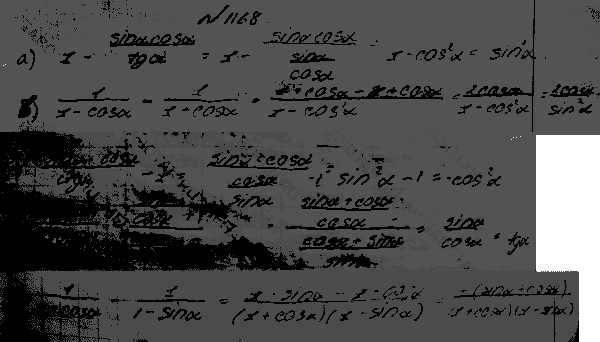 N 1168
а) 1 - sinα cosα / tgα = 1 - sinα cosα / (sinα / cosα) = 1 - cos²α = sin²α
б) 1 / (1 - cosα) - 1 / (1 + cosα) = (1 + cosα - 1 + cosα) / (1 - cos²α) = 2cosα / (1 - cos²α) = 2cosα / sin²α
cosα / ctgα - 1 = sinα · cosα / (cosα / sinα) - 1 = sin²α - 1 = -cos²α
(sinα + cosα / cosα) / (cosα + sinα / sinα) = sinα / cosα = tgα
1 / cosα - 1 / (1 - sinα) = (1 - sinα - 1 - cosα) / ((1 + cosα)(1 - sinα)) = -(sinα + cosα) / ((1 + cosα)(1 - sinα))